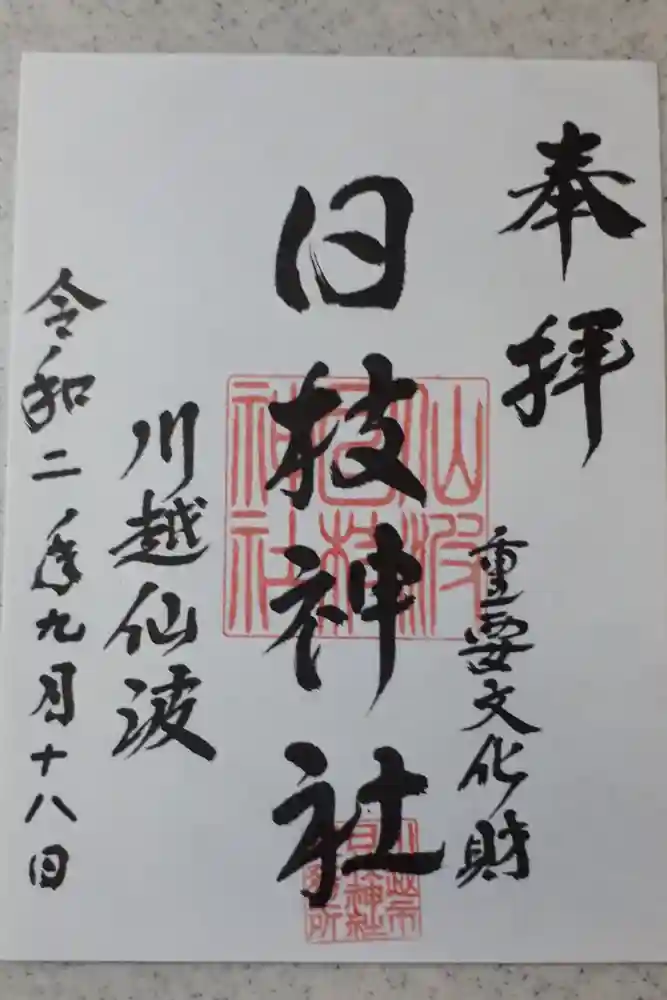 奉拝
重要文化財
仙波
日枝
神社
日枝神社
川越仙波
令和二年九月十八日